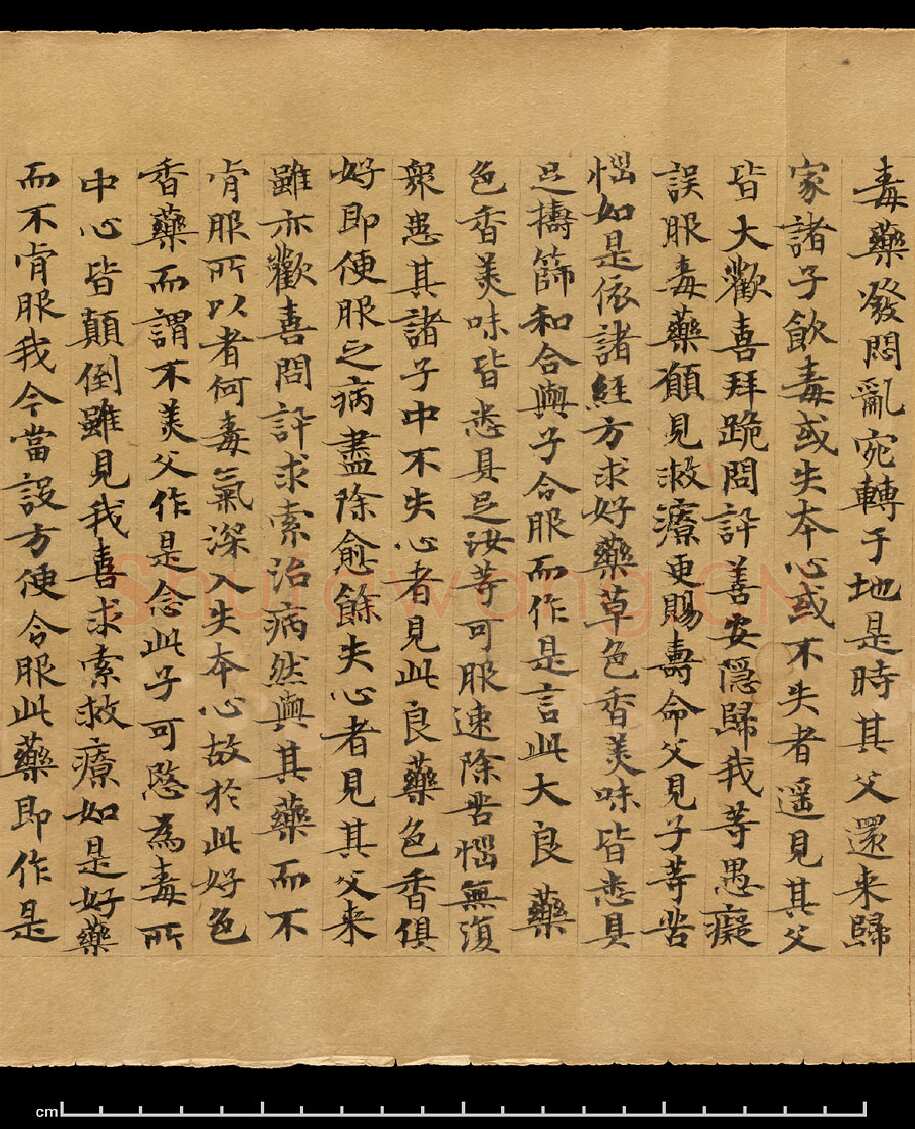 毒藥發悶亂宛轉于地是時其父還来歸
家諸子飲毒或失本心或不失者遥見其父
皆大歡喜拜跪問訊善安隱歸我等愚癡
誤服毒藥願見救療更賜壽命父見子等苦
惱如是依諸經方求好藥草色香美味皆悉具
足擣篩和合與子令服而作是言此大良藥
色香美味皆悉具足汝等可服速除苦惱無復
衆患其諸子中不失心者見此良藥色香俱
好即便服之病盡除愈餘失心者見其父来
雖亦歡喜問訊求索治病然與其藥而不
肯服所以者何毒氣深入失本心故於此好色
香藥而謂不美父作是念此子可愍為毒所
中心皆顛倒雖見我喜求索救療如是好藥
而不肯服我今當設方便令服此藥即作是
cm